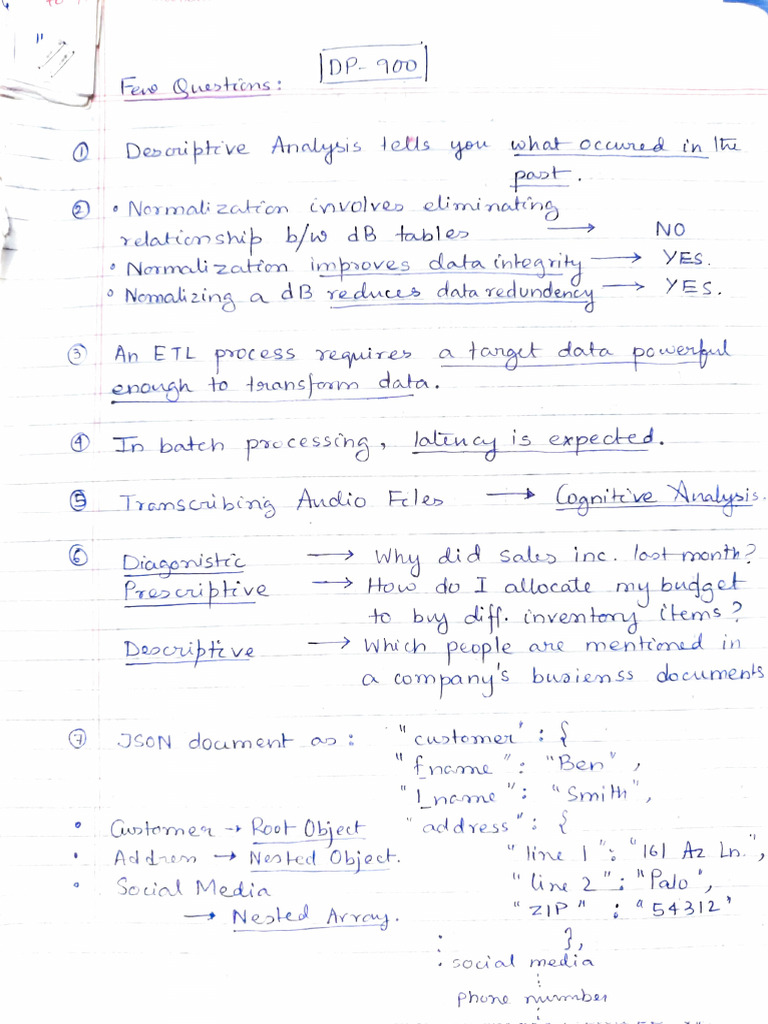 DP-900
Few Questions:
① Descriptive Analysis tells you what occured in the
past.
② • Normalization involves eliminating
relationship b/w dB tables → NO
• Normalization improves data integrity → YES.
• Nomalizing a dB reduces data redundency → YES.
③ An ETL process requires a target data powerful
enough to transform data.
④ In batch processing, latency is expected.
⑤ Transcribing Audio Files → Cognitive Analysis.
⑥ Diagonistic → Why did sales inc. last month?
Prescriptive → How do I allocate my budget
to buy diff. inventory items?
Descriptive → Which people are mentioned in
a company's busienss documents
⑦ JSON document as: "customer" : {
"fname" : "Ben",
"lname" : "Smith",
• Customer → Root Object "address" : {
• Address → Nested Object. "line 1" : "161 Az Ln.",
• Social Media "line 2" : "Palo",
→ Nested Array. "ZIP" : "54312"
},
: social media
phone number